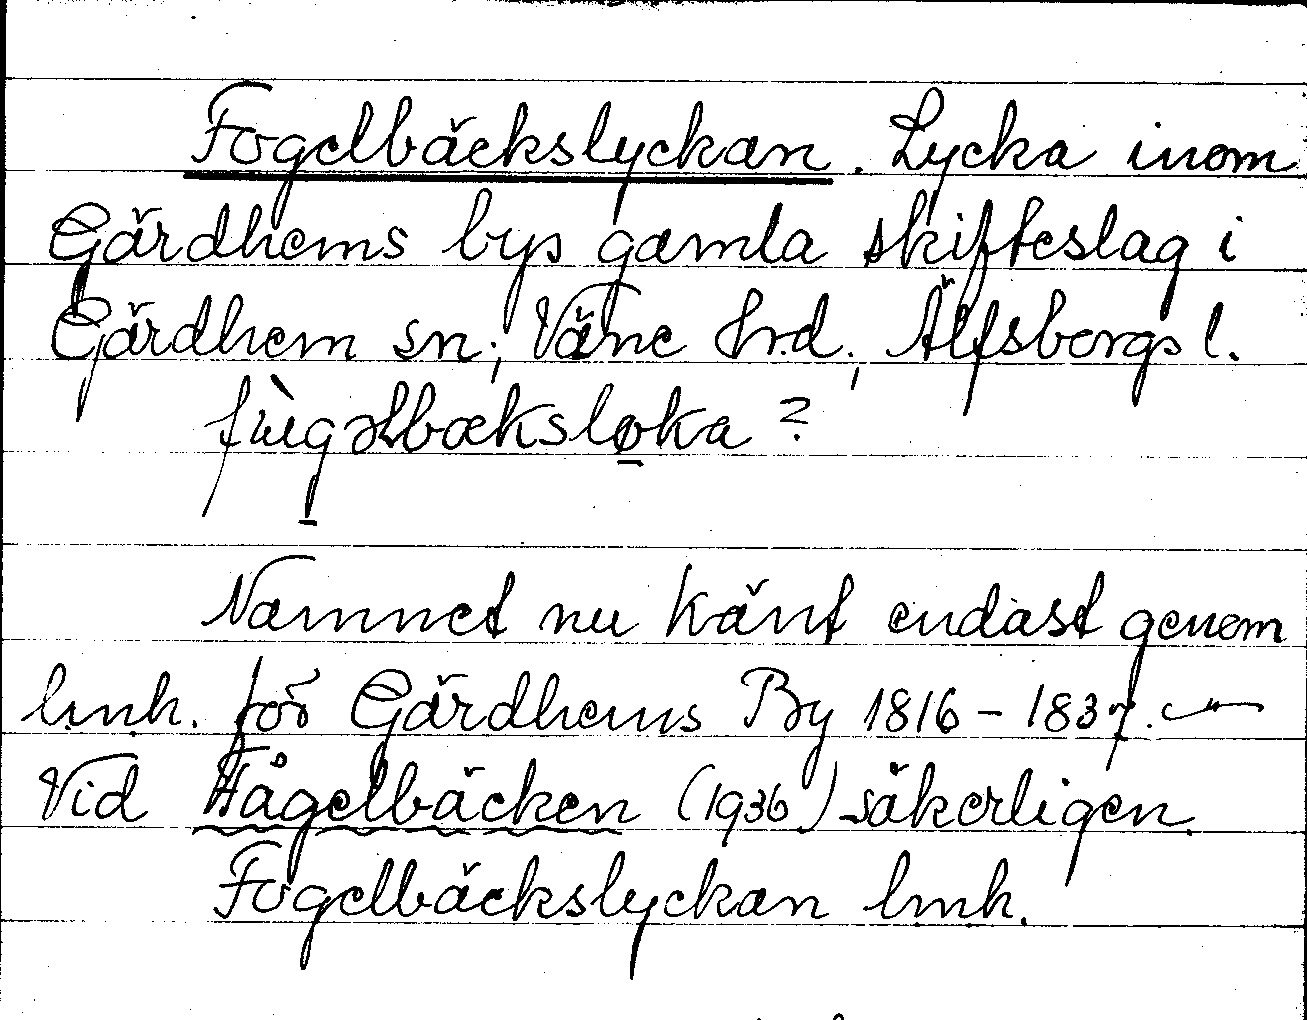 Fogelbäckslyckan. Lycka inom
Gärdhems bys gamla skifteslag i
Gärdhem sn, Väne hrd, Älfsborgs l.
fùgəlbæksloka?
Namnet nu känt endast genom
lmh. för Gärdhems By 1816 – 1837. —
Vid Fågelbäcken (1936) säkerligen.
Fogelbäckslyckan lmh.